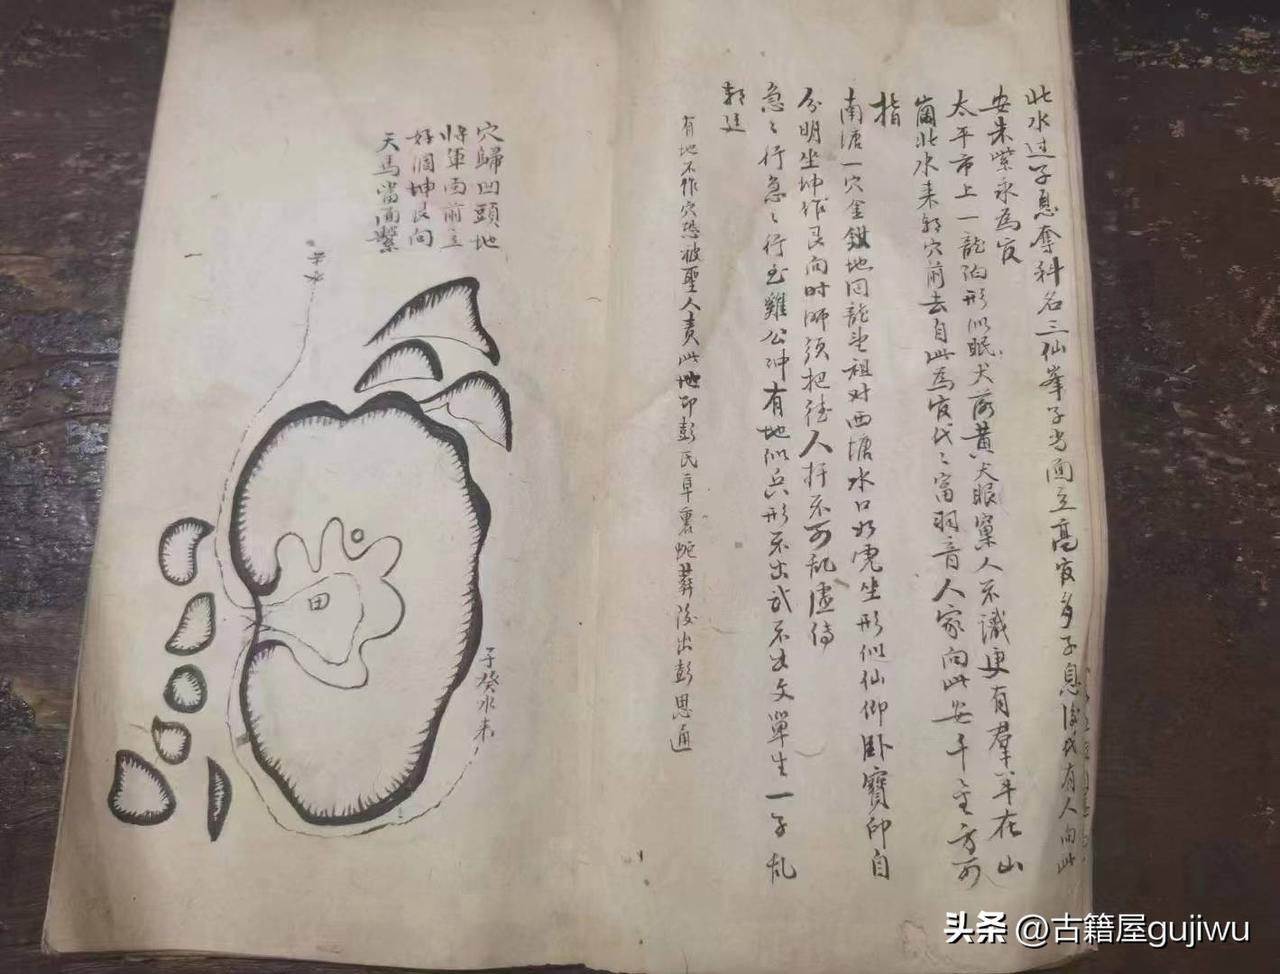 此水过子息夺科名三仙峯子当面立高官多子息後代有人向此
安朱紫永為官
太平市上一龍泊形似眠犬落黄犬眼窠人不識更有羣羊在山
崗北水来朝穴前去自此為官代〻富羽音人家向此安千金方可
指
南塘一穴金釵地回龍望祖对西塘水口水虎坐形似仙仰卧寶印自
分明坐坤作艮向时师须把徃人扦不可乱虚傳
急〻行急〻行又雞公冲有地似兵形不出武不出文單生一子扎
朝廷
有地不作穴恐被聖人責此地卯彭氏阜裏蜿葬後出彭思通
穴歸凹頭地
将軍面前立
好個坤艮向
天馬當面繫
子癸水来
田
头条 @古籍屋gujiwu